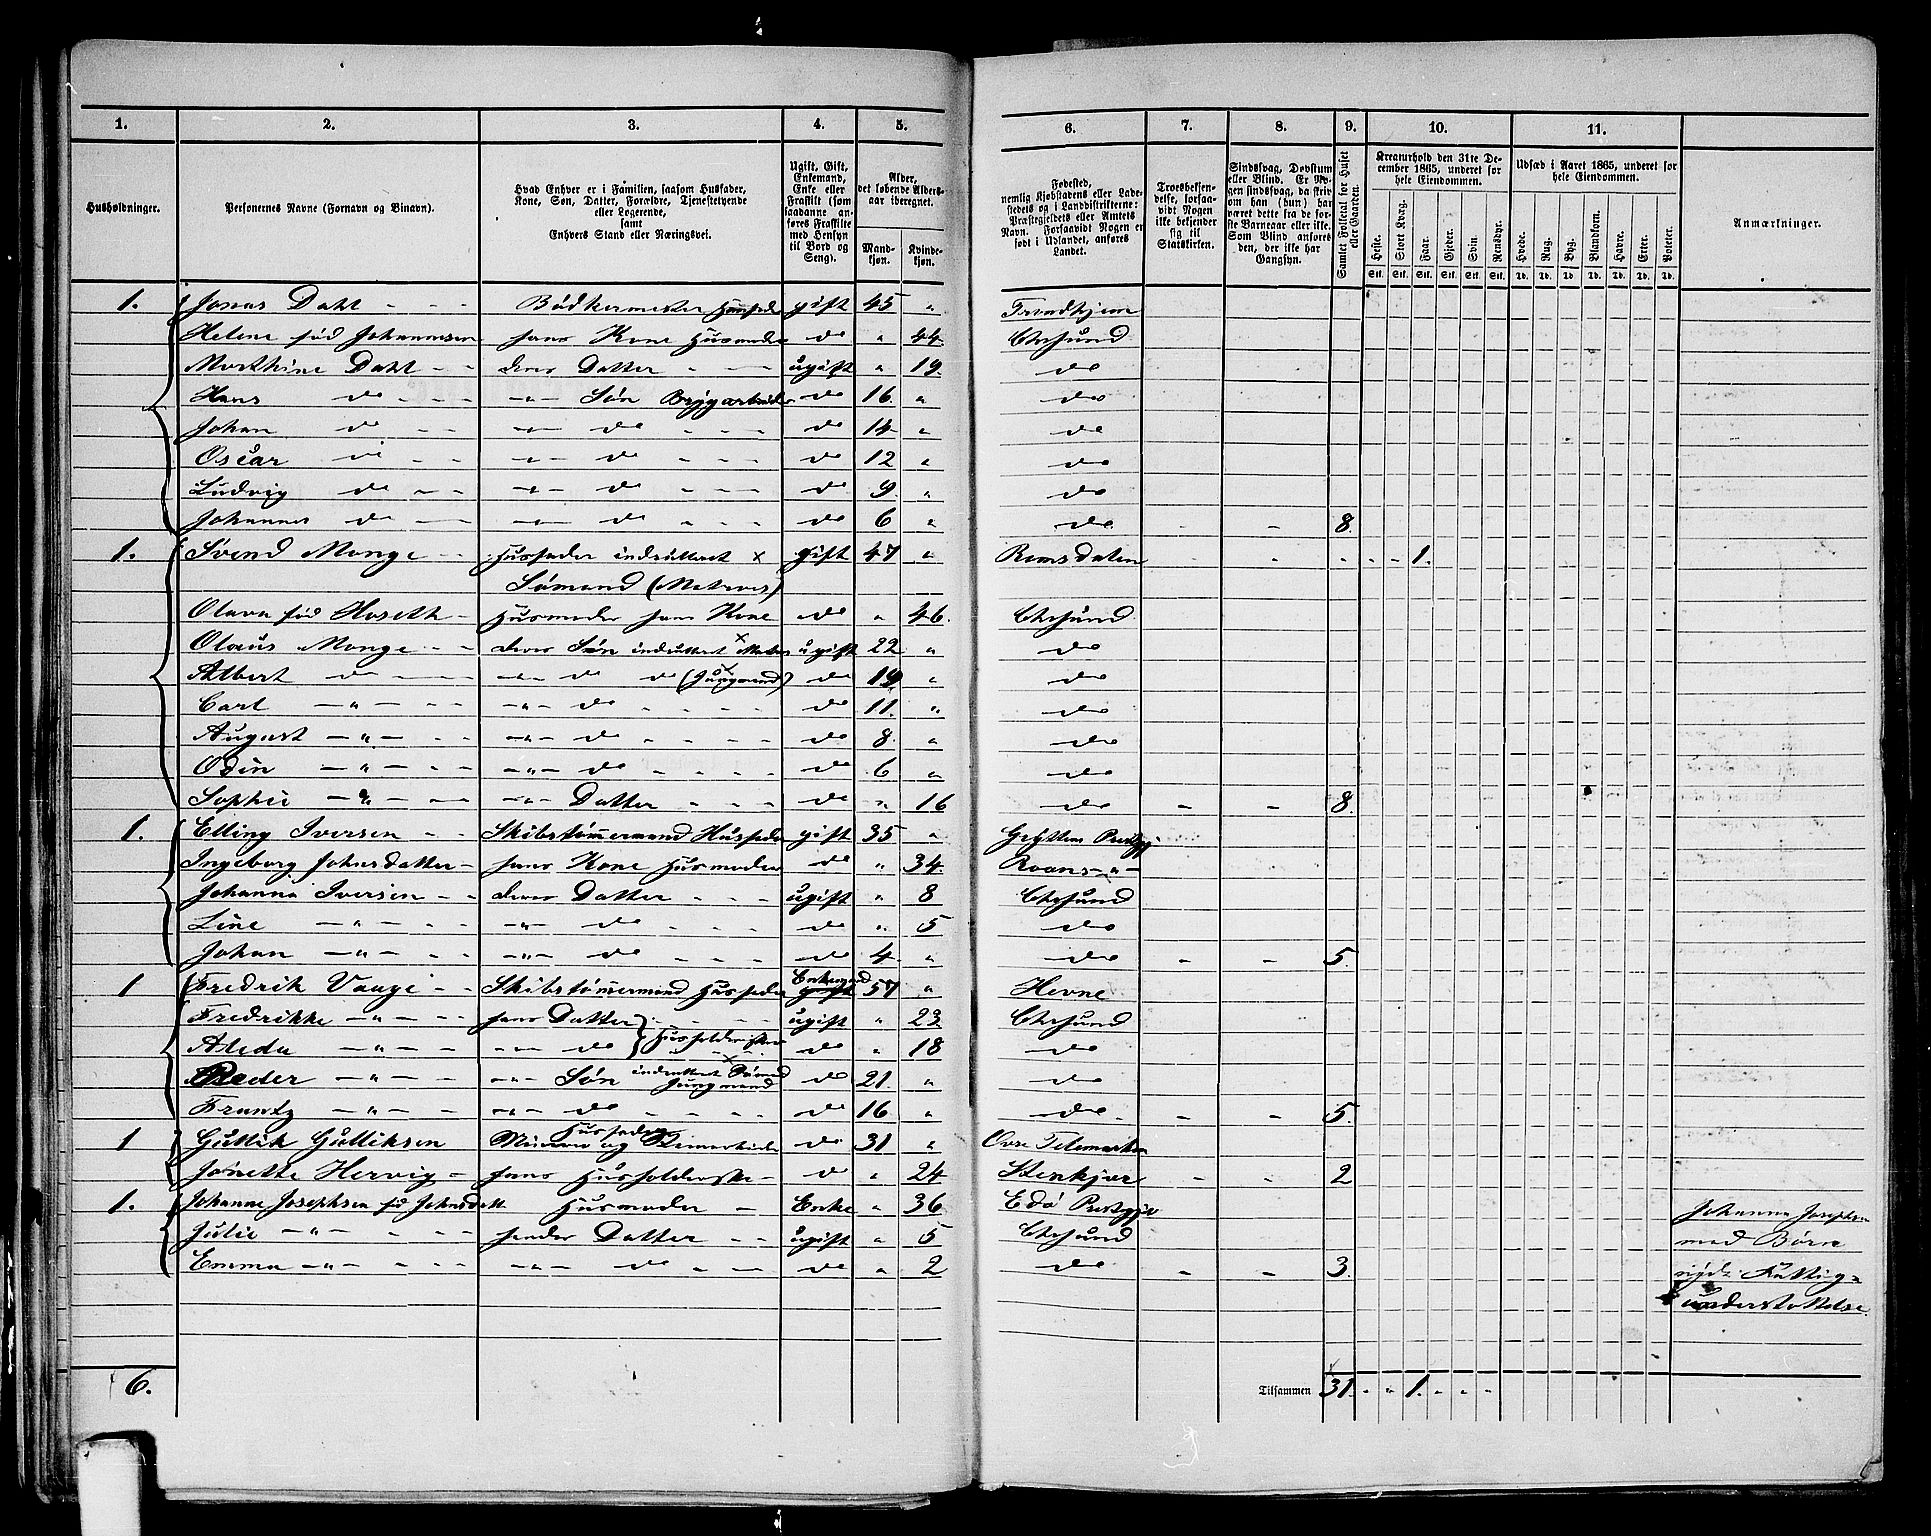 1. 2. 3. 4. 5. 6. 7. 8. 9. 10. 11.
Husholdninger.
Personernes Navne (Fornavn og Binavn).
Hvad Enhver er i Familien, saasom Husfader,
Kone, Søn, Datter, Forældre, Tjenestetyende
eller Logerende,
samt
Enhvers Stand eller Næringsvei.
Ugift, Gift,
Enkemand,
Enke eller
Fraskilt (som
saadanne an-
føres Fraskilte
med Hensyn
til Bord og
Seng).
Alder,
det løbende Alders-
aar iberegnet.
Mand-
kjøn.
Kvinde-
kjøn.
Fødested,
nemlig Kjøbstadens eller Lade-
stedets og i Landdistrikterne:
Præstegjeldets eller Amtets
Navn. Forsaavidt Nogen er
født i Udlandet, anføres
Landet.
Troesbekjen-
delse, forsaa-
vidt Nogen
ikke bekjender
sig til
Statskirken.
Sindssvag, Døvstum
eller Blind. Er No-
gen sindssvag, da skriv
om han (hun) har
været dette fra de før-
ste Barneaar eller ikke.
Som Blind anføres
den, der ikke har
Gangsyn.
Samlet Folketal for Huset
eller Gaarden.
Kreaturhold den 31te De-
cember 1865, underet for
hele Eiendommen.
Heste. Stort Kvæg. Faar. Gjeder. Svin. Rensdyr.
Stk. Stk. Stk. Stk. Stk. Stk.
Udsæd i Aaret 1865, underet for
hele Eiendommen.
Hvede. Rug. Byg. Blandkorn. Havre. Erter. Poteter.
Td. Td. Td. Td. Td. Td. Td.
Anmærkninger.
1. Jonas Dahl - - - Bødkermester Husfader gift 45 " Trondhjem
Helene fød Johannesen hans Kone Husmoder do " 44 Chrsund
Marthine Dahl - - deres Datter - - - ugift " 19. do
Hans do - - -"- Søn Brygarbeider do 16. " do
Johan do - - -"- do - - - do 14 " do
Oscar do - - -"- do - - - do 12 " do
Ludvig do - - -"- do - - - do 9 " do
Johannes do - - -"- do - - - do 6 " do - - 8.
1. Svend Monge - - Husfader indrulleret x gift 47 " Romsdalen - - - - - 1.
Sømand (Matros)
Olava fød Hoseth - Husmoder hans Kone do " 46. Chrsund
Olaus Monge - - deres Søn indrulleret x Matros ugift 22 " do
Albert do - - -"- do do (Jungmand) do 19 " do
Carl -"- - - -"- do - - - do 11. " do
August -"- - -"- do - - - do 8. " do
Odin -"- - - -"- do - - - do 6 " do
Sophie -"- - - -"- Datter - - do " 16 do - - 8.
1. Elling Iversen - - Skibstømmermand Husfader gift 35 " Gryttens Prestgj
Ingeborg Johnsdatter - hans Kone Husmoder do " 34. Roans -"-
Johanna Iversen - - deres Datter - - - ugift " 8 Chrsund
Line -"- - - -"- do - - - do " 5 do
Johan -"- - - -"- do - - - do 4. " do - - 5.
1 Fredrik Vaage - - Skibstømmermand Husfader Enkemand gift 57 " Hevne
Fredrikke -"- - hans Datter } - - - ugift " 23 Chrsund
Aleda -"- - -"- do } Husholdersker do " 18 do
Peder -"- - -"- Søn indrulleret x Sømand Jungmand do 21. " do
Frantz -"- - - -"- do - - - do 16 " do - - 5.
1 Guttik Guttiksen Husfader Minerer og do 31 " Øvre Telemarken
Jonette Hervig - hans Husholderske - do " 24 Stenkjær - - 2
1. Johanne Josephsen fød Johnsdatt Husmoder - Enke " 36 Edø Prestgje
Julie -"- - hendes Datter - - ugift " 5 Chrsund
Emma -"- - - -"- do - - do " 2 do - - 3.
Johanna Josephsen
med Børn
nyde Fattig-
understøttelse
6.
Tilsammen 31. - " 1. - - -